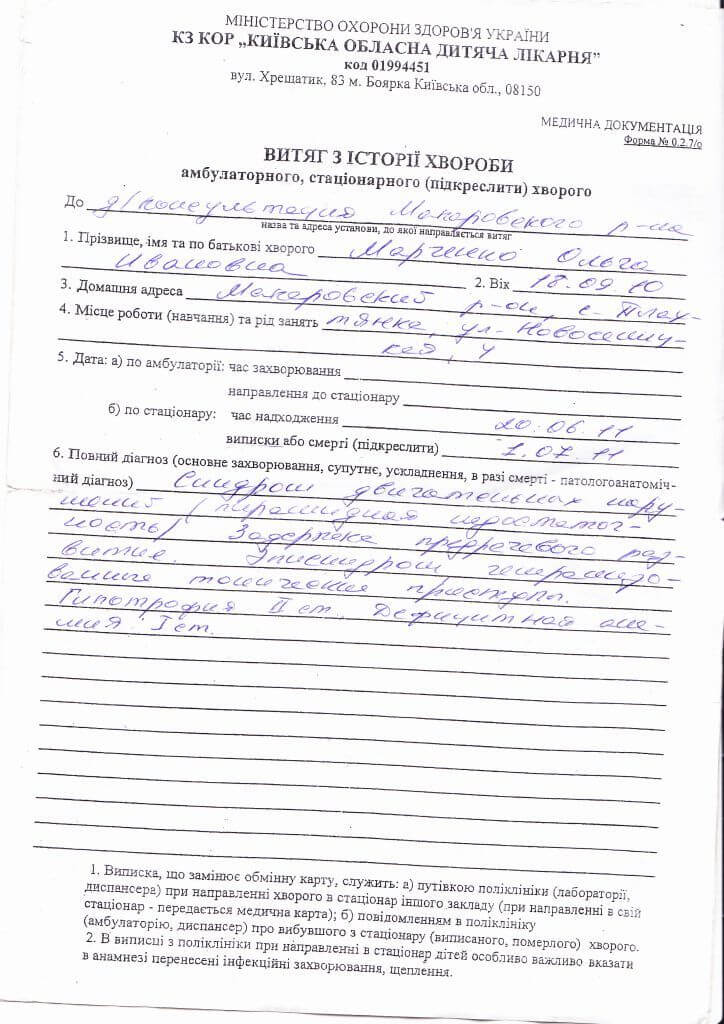 МІНІСТЕРСТВО ОХОРОНИ ЗДОРОВ'Я УКРАЇНИ
КЗ КОР „КИЇВСЬКА ОБЛАСНА ДИТЯЧА ЛІКАРНЯ”
код 01994451
вул. Хрещатик, 83 м. Боярка Київська обл., 08150
МЕДИЧНА ДОКУМЕНТАЦІЯ
Форма № 0.2.7/о
ВИТЯГ З ІСТОРІЇ ХВОРОБИ
амбулаторного, стаціонарного (підкреслити) хворого
До д/консультация Макаровского р-на
назва та адреса установи, до якої направляється витяг
1. Прізвище, імя та по батькові хворого Марченко Ольга
Ивановна 2. Вік 18.09.10
3. Домашня адреса Макаровский р-он, с. Плах-
4. Місце роботи (навчання) та рід занять тянка, ул.
кая, 4
5. Дата: а) по амбулаторії: час захворювання
направлення до стаціонару
б) по стаціонару: час надходження 20.06.11
виписки або смерті (підкреслити) 1.07.11
6. Повний діагноз (основне захворювання, супутнє, ускладнення, в разі смерті - патологоанатоміч-
ний діагноз) Синдром двигательных нару-
шений (пирамидная недостаточ-
ность) Задержка предречевого раз-
вития. Эписиндром генерализо-
ванные тонические приступы.
Гипотрофия II ст. Дефицитная ане-
мия I ст.
1. Виписка, що замінює обмінну карту, служить: а) путівкою поліклініки (лабораторії,
диспансера) при направленні хворого в стаціонар іншого закладу (при направленні в свій
стаціонар - передається медична карта); б) повідомленням в поліклініку
(амбулаторію, диспансер) про вибувшого з стаціонару (виписаного, померлого) хворого.
2. В виписці з поліклініки при направленні в стаціонар дітей особливо важливо вказати
в анамнезі перенесені інфекційні захворювання, щеплення.